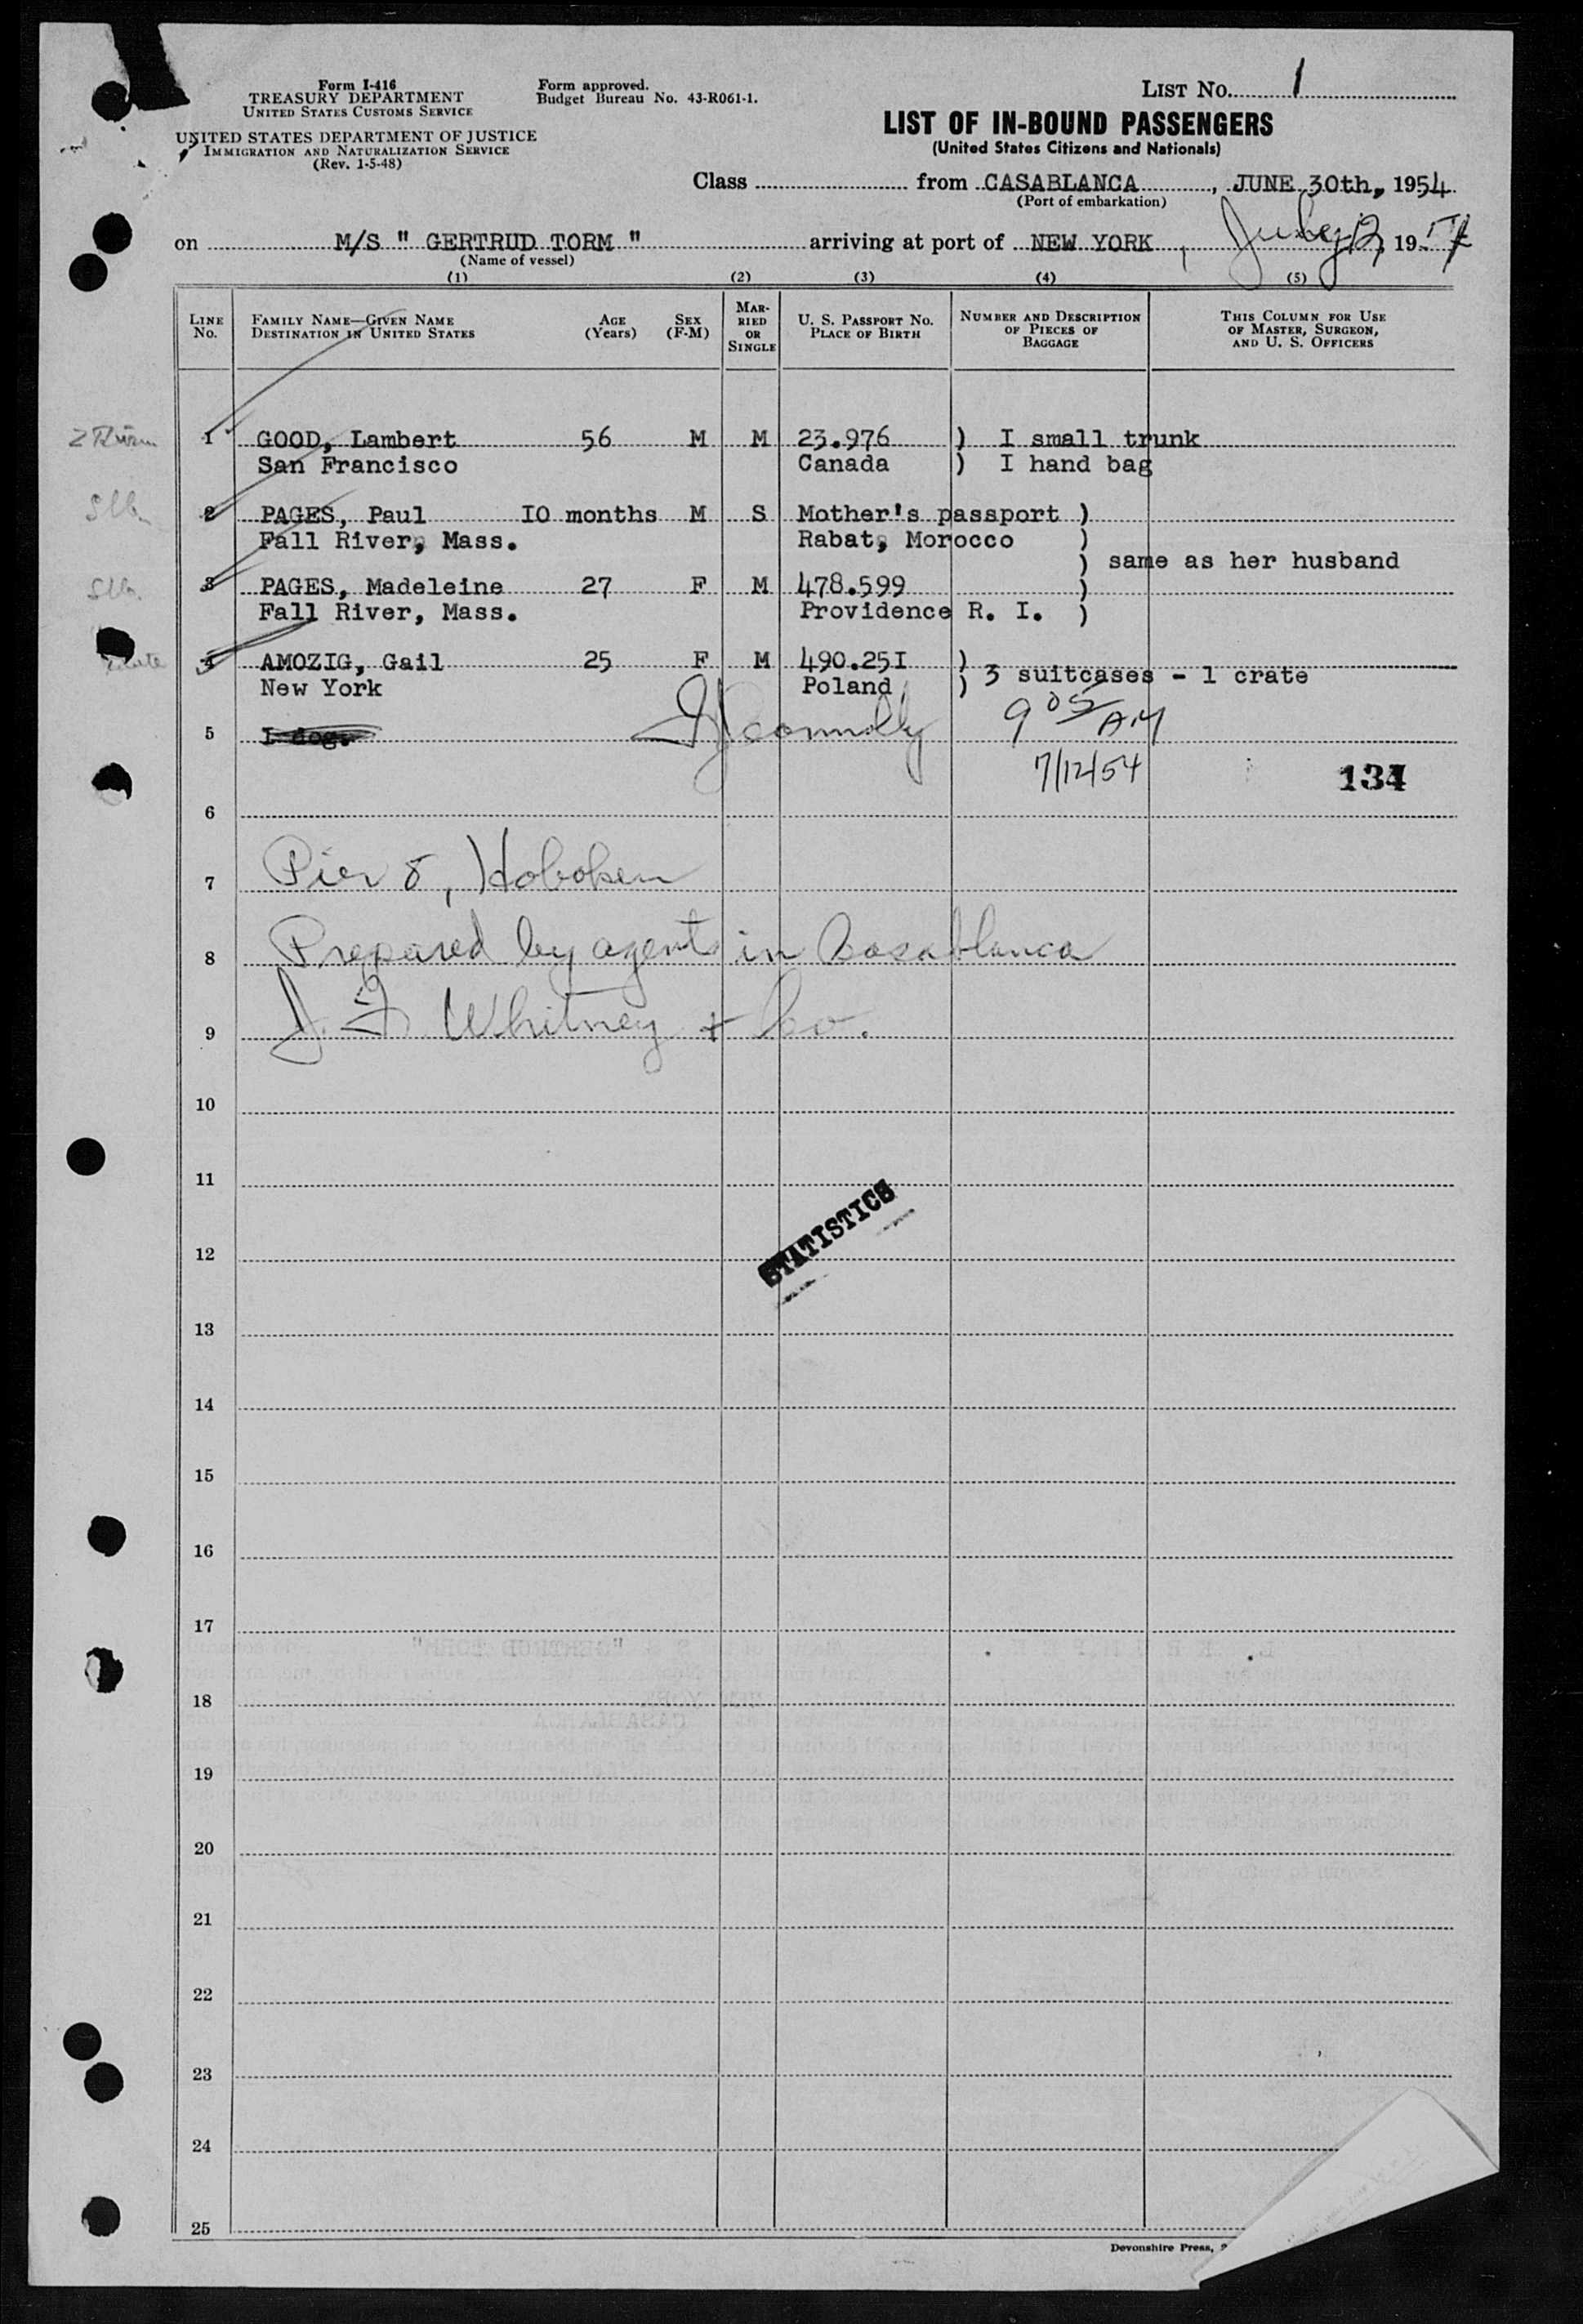 Form I-416
TREASURY DEPARTMENT
UNITED STATES CUSTOMS SERVICE
UNITED STATES DEPARTMENT OF JUSTICE
IMMIGRATION AND NATURALIZATION SERVICE
(Rev. 1-5-48)
Form approved.
Budget Bureau No. 43-R061-1.
LIST NO. 1
LIST OF IN-BOUND PASSENGERS
(United States Citizens and Nationals)
Class from CASABLANCA, JUNE 30th, 1954
(Port of embarkation)
on M/S " GERTRUD TORM " arriving at port of NEW YORK, July 12, 1954
(Name of vessel)
(1) (2) (3) (4) (5)
LINE NO. FAMILY NAME—GIVEN NAME DESTINATION IN UNITED STATES AGE (Years) SEX (F-M) MARRIED OR SINGLE U. S. PASSPORT NO. PLACE OF BIRTH NUMBER AND DESCRIPTION OF PIECES OF BAGGAGE THIS COLUMN FOR USE OF MASTER, SURGEON, AND U. S. OFFICERS
1 GOOD, Lambert 56 M M 23.976 ) I small trunk
San Francisco Canada ) I hand bag
2 PAGES, Paul IO months M S Mother's passport )
Fall River, Mass. Rabat, Morocco )
) same as her husband
3 PAGES, Madeleine 27 F M 478.599 )
Fall River, Mass. Providence R. I. )
4 AMOZIG, Gail 25 F M 490.25I )
New York Poland ) 3 suitcases - 1 crate
5 I dog. Connolly 9 05 AM
7/12/54 134
6
7 Pier 8, Hoboken
8 Prepared by agents in Casablanca
9 J. F. Whitney + Co.
10
11
STATISTICS
12
13
14
15
16
17
18
19
20
21
22
23
24
25
Devonshire Press,